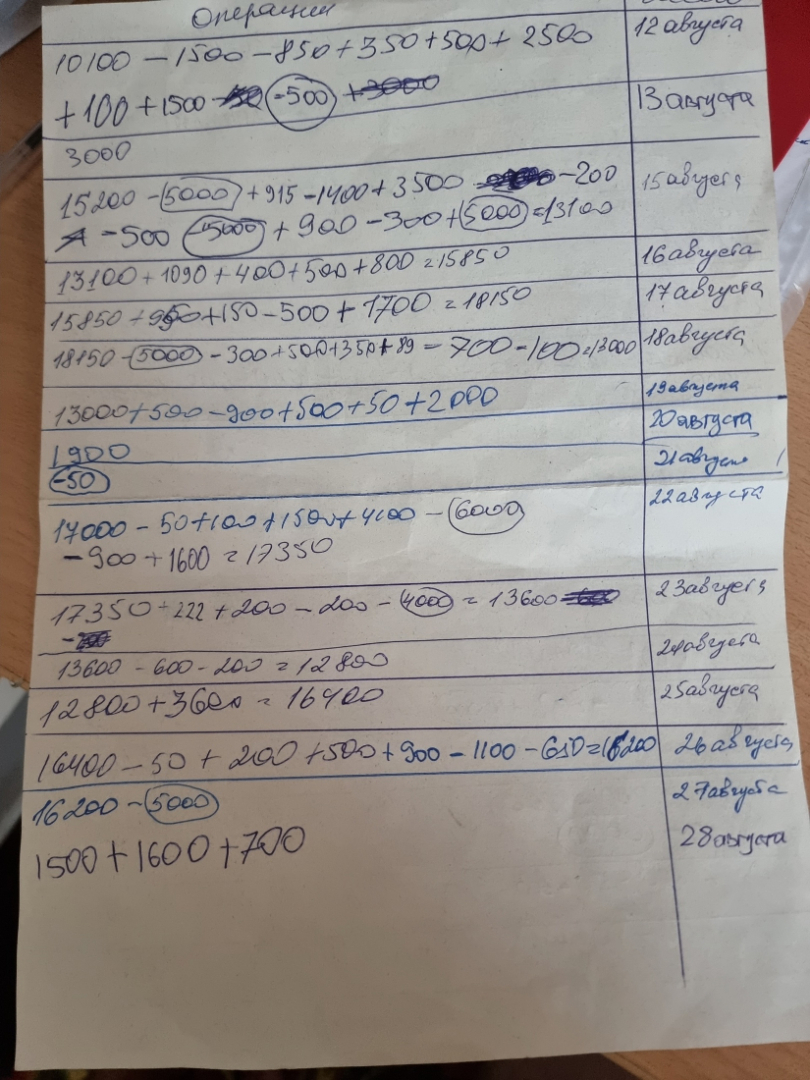 Операции
10100 - 1500 - 850 + 350 + 500 + 2500 12 августа
+ 100 + 1500 -500 +3000 13 августа
3000
15200 - 5000 + 915 - 1400 + 3500 - 200 15 августа
- 500 -5000 + 900 - 300 + 5000 = 13100
13100 + 1090 + 400 + 500 + 800 = 15850 16 августа
15850 + 950 + 150 - 500 + 1700 = 18150 17 августа
18150 - 5000 - 300 + 500 + 350 + 89 - 700 - 100 = 13000 18 августа
13000 + 500 - 900 + 500 + 50 + 2000 19 августа
1900 20 августа
-50 21 августа
17000 - 50 + 100 + 1500 + 4100 - 6000 22 августа
- 900 + 1600 = 17350
17350 + 222 + 200 - 200 - 4000 = 13600 23 августа
13600 - 600 - 200 = 12800 24 августа
12800 + 3600 = 16400 25 августа
16400 - 50 + 200 + 500 + 900 - 1100 - 650 = 16200 26 августа
16200 - 5000 27 августа
1500 + 1600 + 700 28 августа